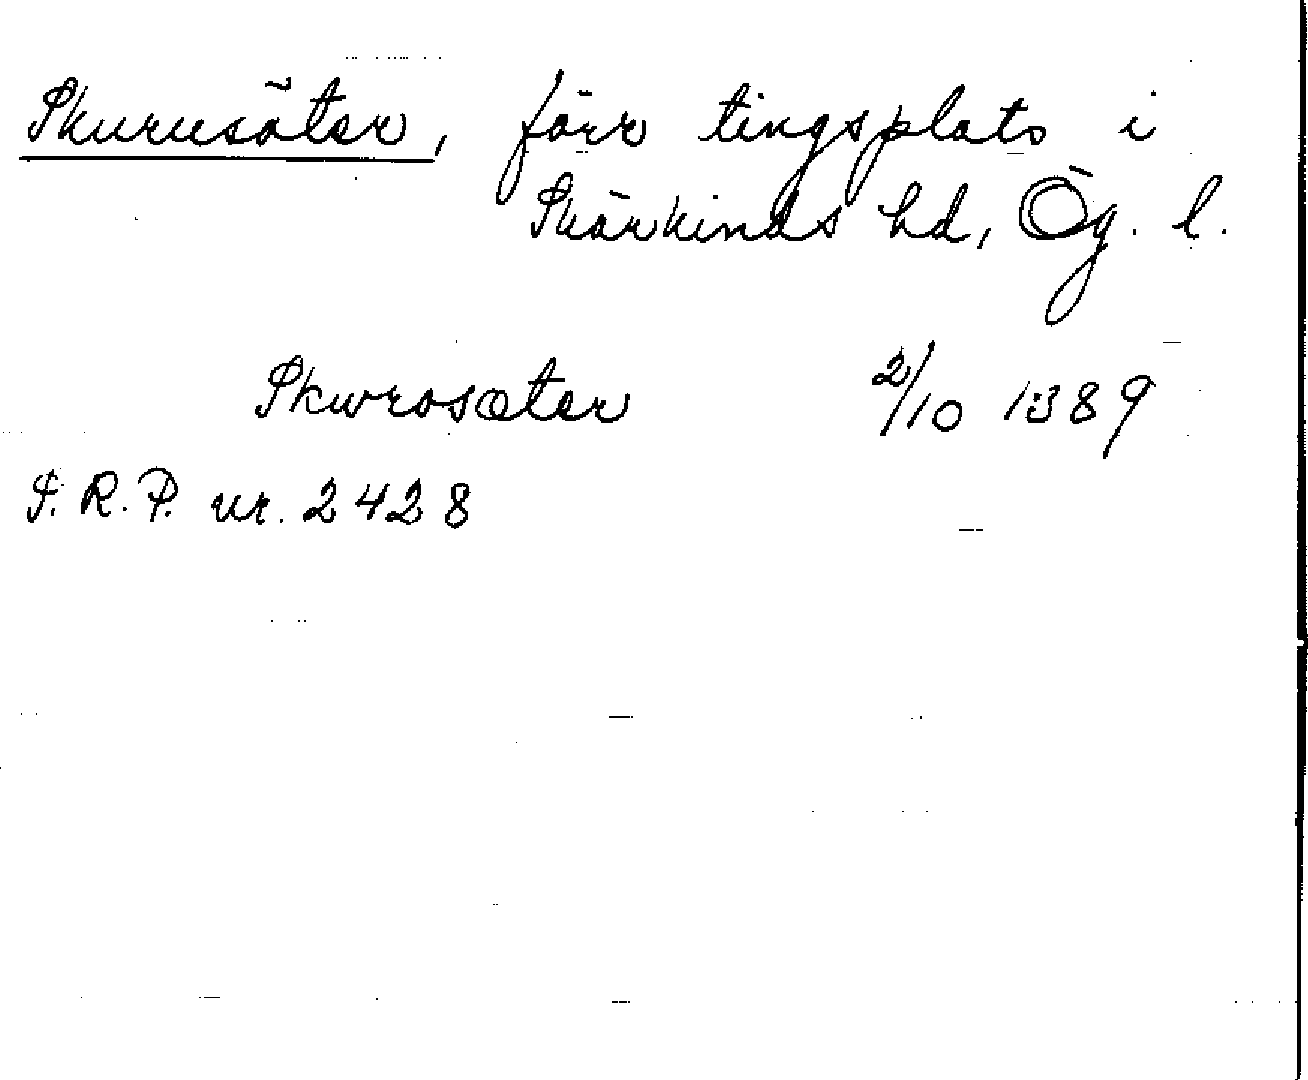 Skurusäter, förr tingsplats i
Skärkinds hd, Ög. l.
Skwrosæter 2/10 1389
S.R.P. nr. 2428